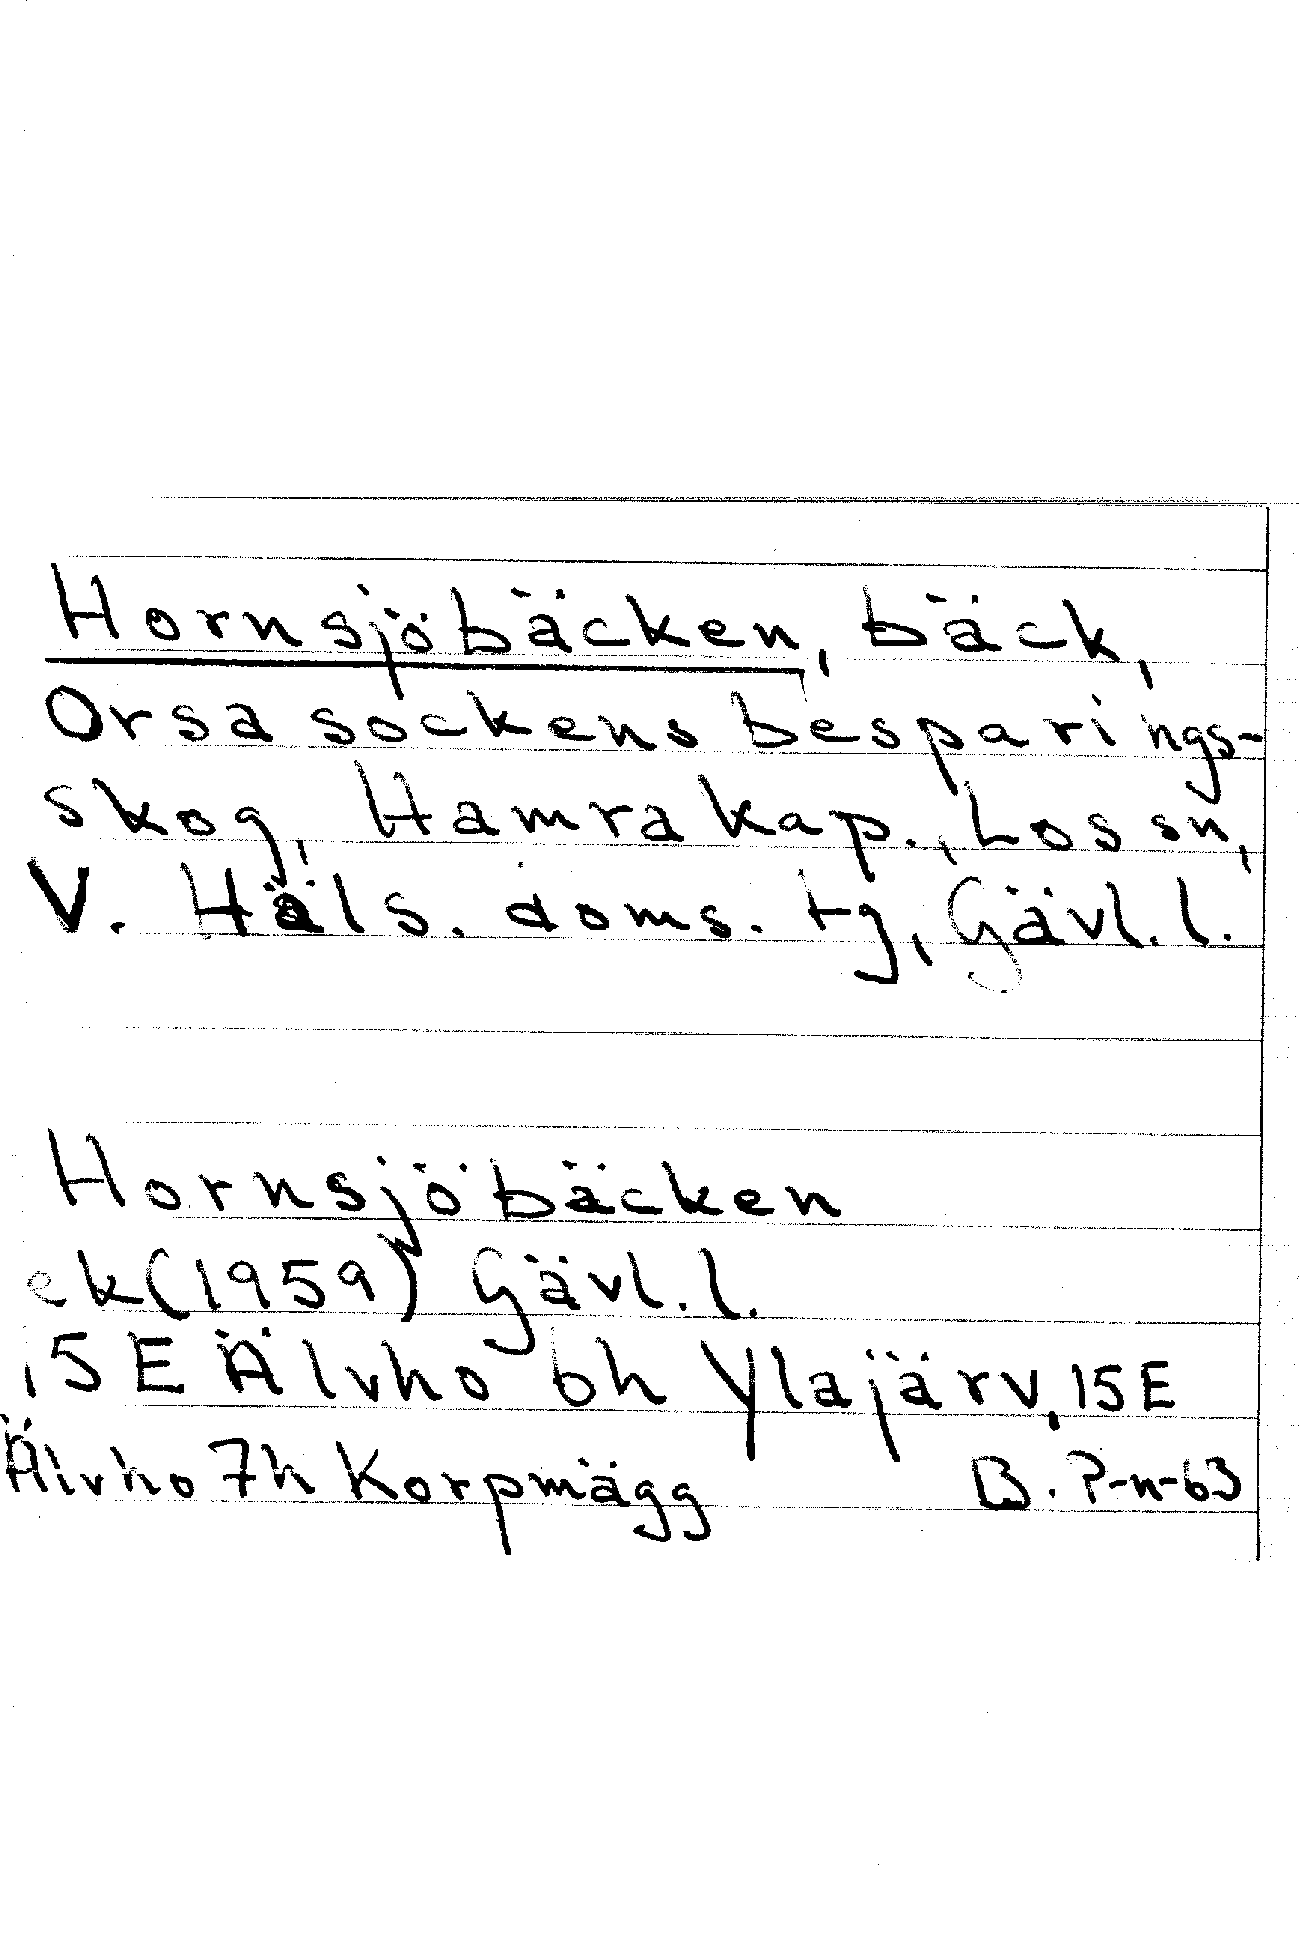 Hornsjöbäcken, bäck,
Orsa sockens besparings-
skog, Hamra kap., Los sn,
V. Häls. doms. tg, Gävl. l.
Hornsjöbäcken
ek (1959) Gävl. l.
15 E Älvho 6h Ylajärv, 15 E
Älvho 7h Korpmägg B. P-n-63